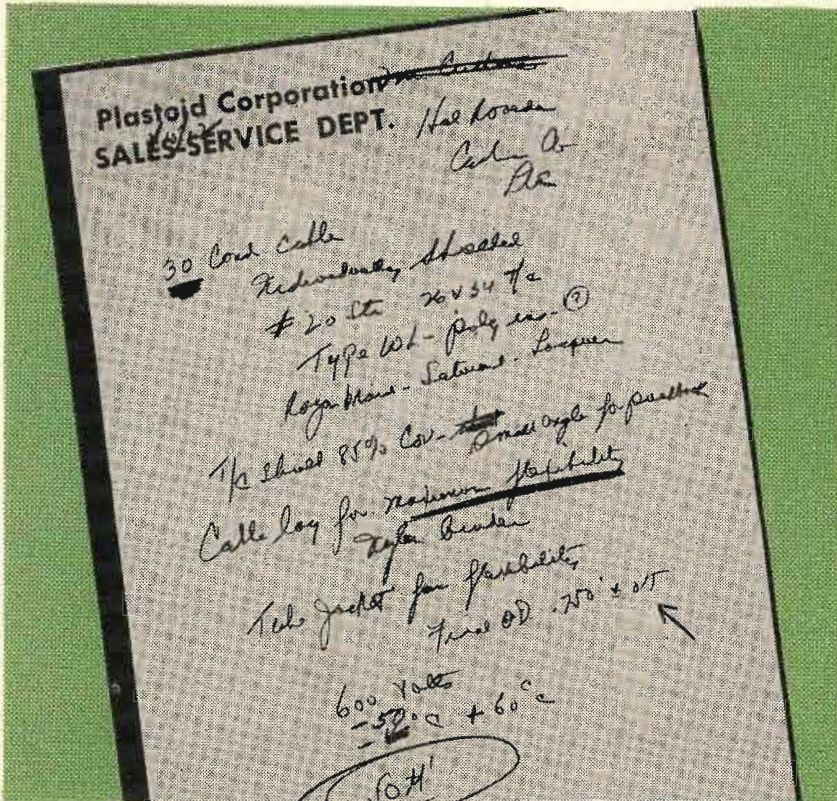 Plastoid Corporation
SALES-SERVICE DEPT.
30 Cond Cable
Individually Shielded
# 20 Str 26 x 34 T/c
Type WL - poly ins. ?
Rayon Braid - Saturant - Lacquer
T/c Shield 85% Cov - Small angle for
Cable lay for maximum flexibility
Nylon Binder
Tube Jacket for flexibility
Final OD .750" ± .015
600 Volts
-50°C + 60°C